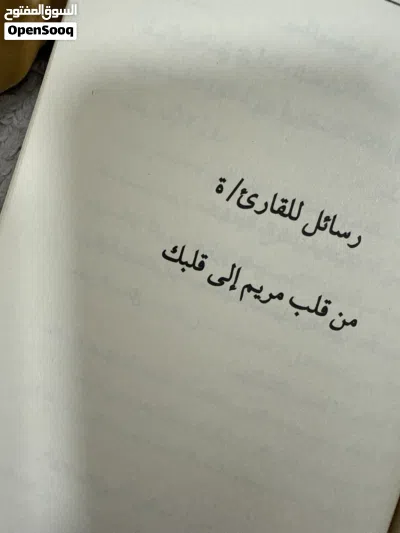 السوق المفتوح
OpenSooq
رسائل للقارئ/ة
من قلب مريم إلى قلبك